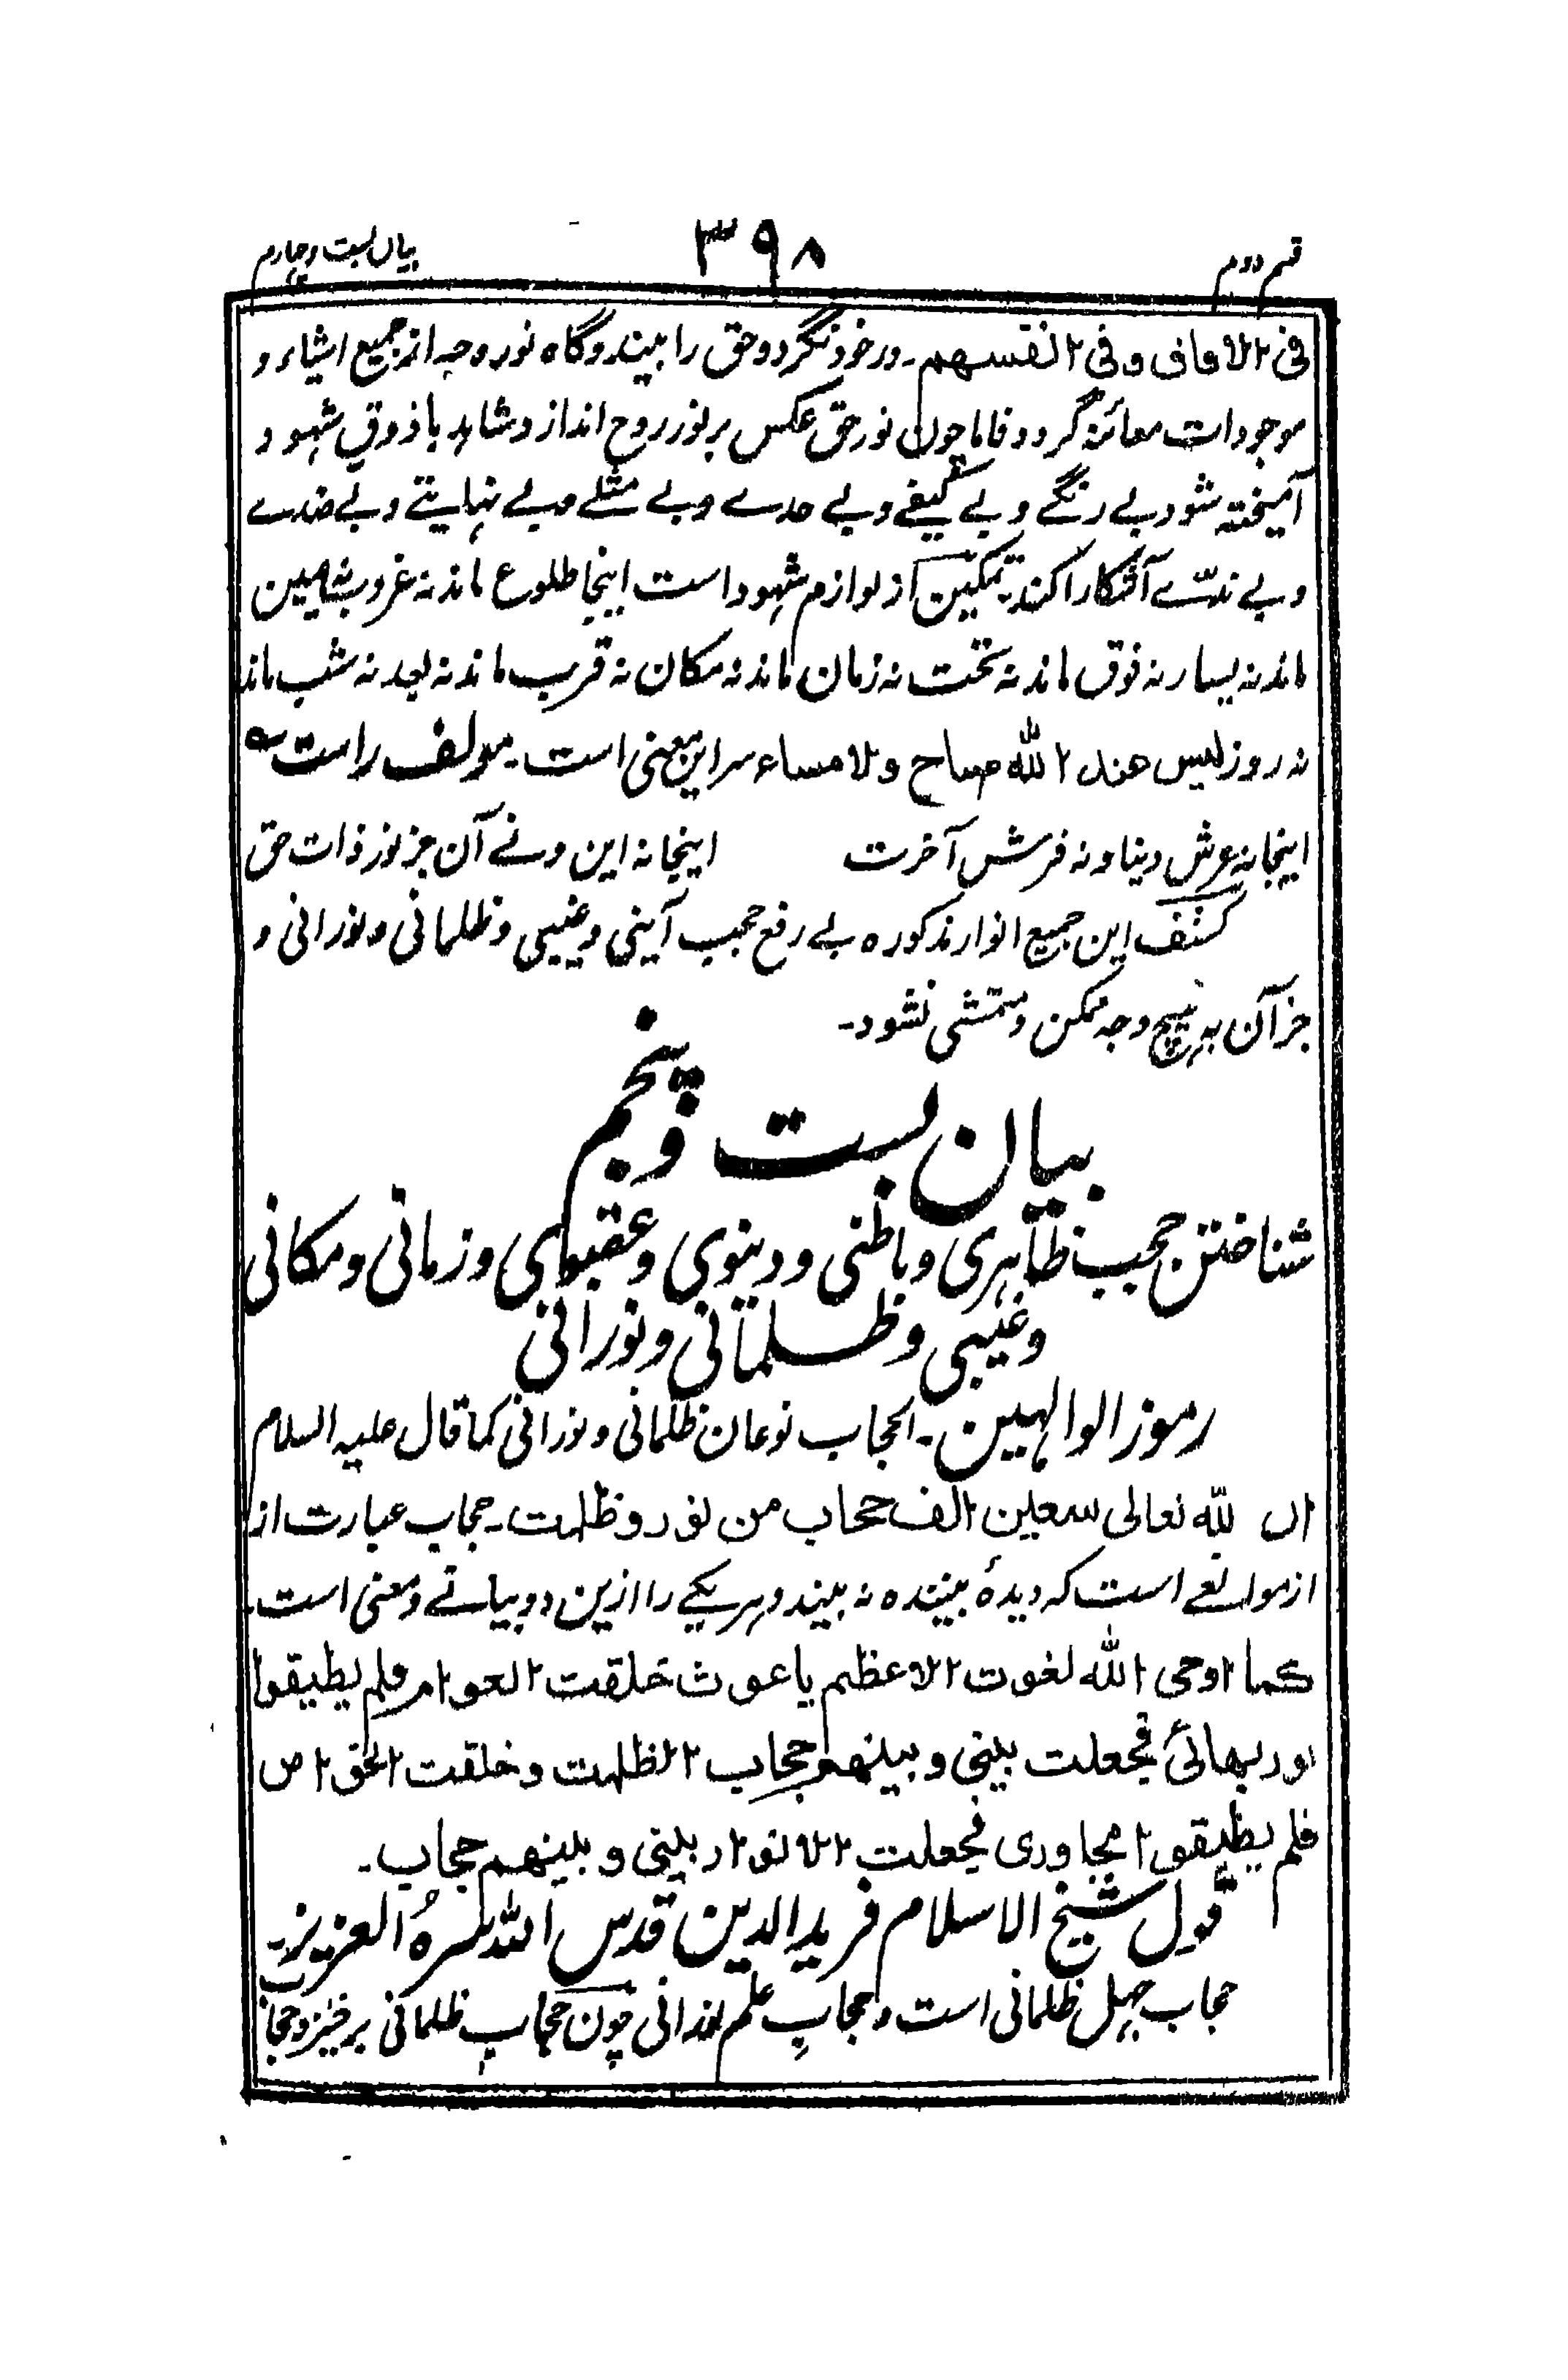 قسم دوم
۳۹۸
بیان بست و چهارم
فی الآفاق وفی انفسهم۔ درخود نگرد و حق را بیند و گاه نور وجه از جمیع اشیاء و
موجودات معائنه گردد فاما چون نور حق عکس بر نور روح اندازد و مشاهد با ذوق شهود
آمیخته شود بے رنگے و بے کیفے و بے حدے و بے مثلے و بے نهایتے و بے ضدے
و بے ندّے آشکارا کند تمکین از لوازم شهود است اینجا طلوع ماند نه غروب نه یمین
ماند نه یسار نه فوق ماند نه تحت نه زمان ماند نه مکان نه قرب ماند نه بعد نه شب ماند
نه روز لیس عند الله صباح ولا مساء سر این معنی است۔ مولف راست
اینجا نه عرش دینا و نه فرش آخرت اینجا نه این و نے آن جز نور ذات حق
کشف این جمیع انوار مذکوره بے رفع حجب آینی و غیبی و ظلمانی و نورانی و
جز آن به هیچ وجه ممکن و متمشی نشود۔
بیان بست و پنجم
شناختن حجب ظاهری و باطنی و دینوی و عقبوای و زمانی و مکانی
و غیبی و ظلمانی و نورانی
رموز الوالهین۔ الحجاب نوعان ظلمانی و نورانی کما قال علیه السلام
ان لله تعالی سبعین الف حجاب من نور و ظلمت۔ حجاب عبارت از
از موانعے است که دیدهٔ بیننده نه بیند و هر یکے را ازین دو بیانے و معنی است۔
کما اوحی الله لغوث الاعظم یا غوث خلقت العوام فلم یطیقوا
نور بهائی فجعلت بینی و بینهم حجاب الظلمت و خلقت الخواص
فلم یطیقوا مجاوری فجعلت الانوار بینی و بینهم حجاب۔
قول شیخ الاسلام فرید الدین قدس الله سرهُ العزیز۔
حجاب جهل ظلمانی است و حجابِ علم نورانی چون حجاب ظلمانی برخیزد حجاب